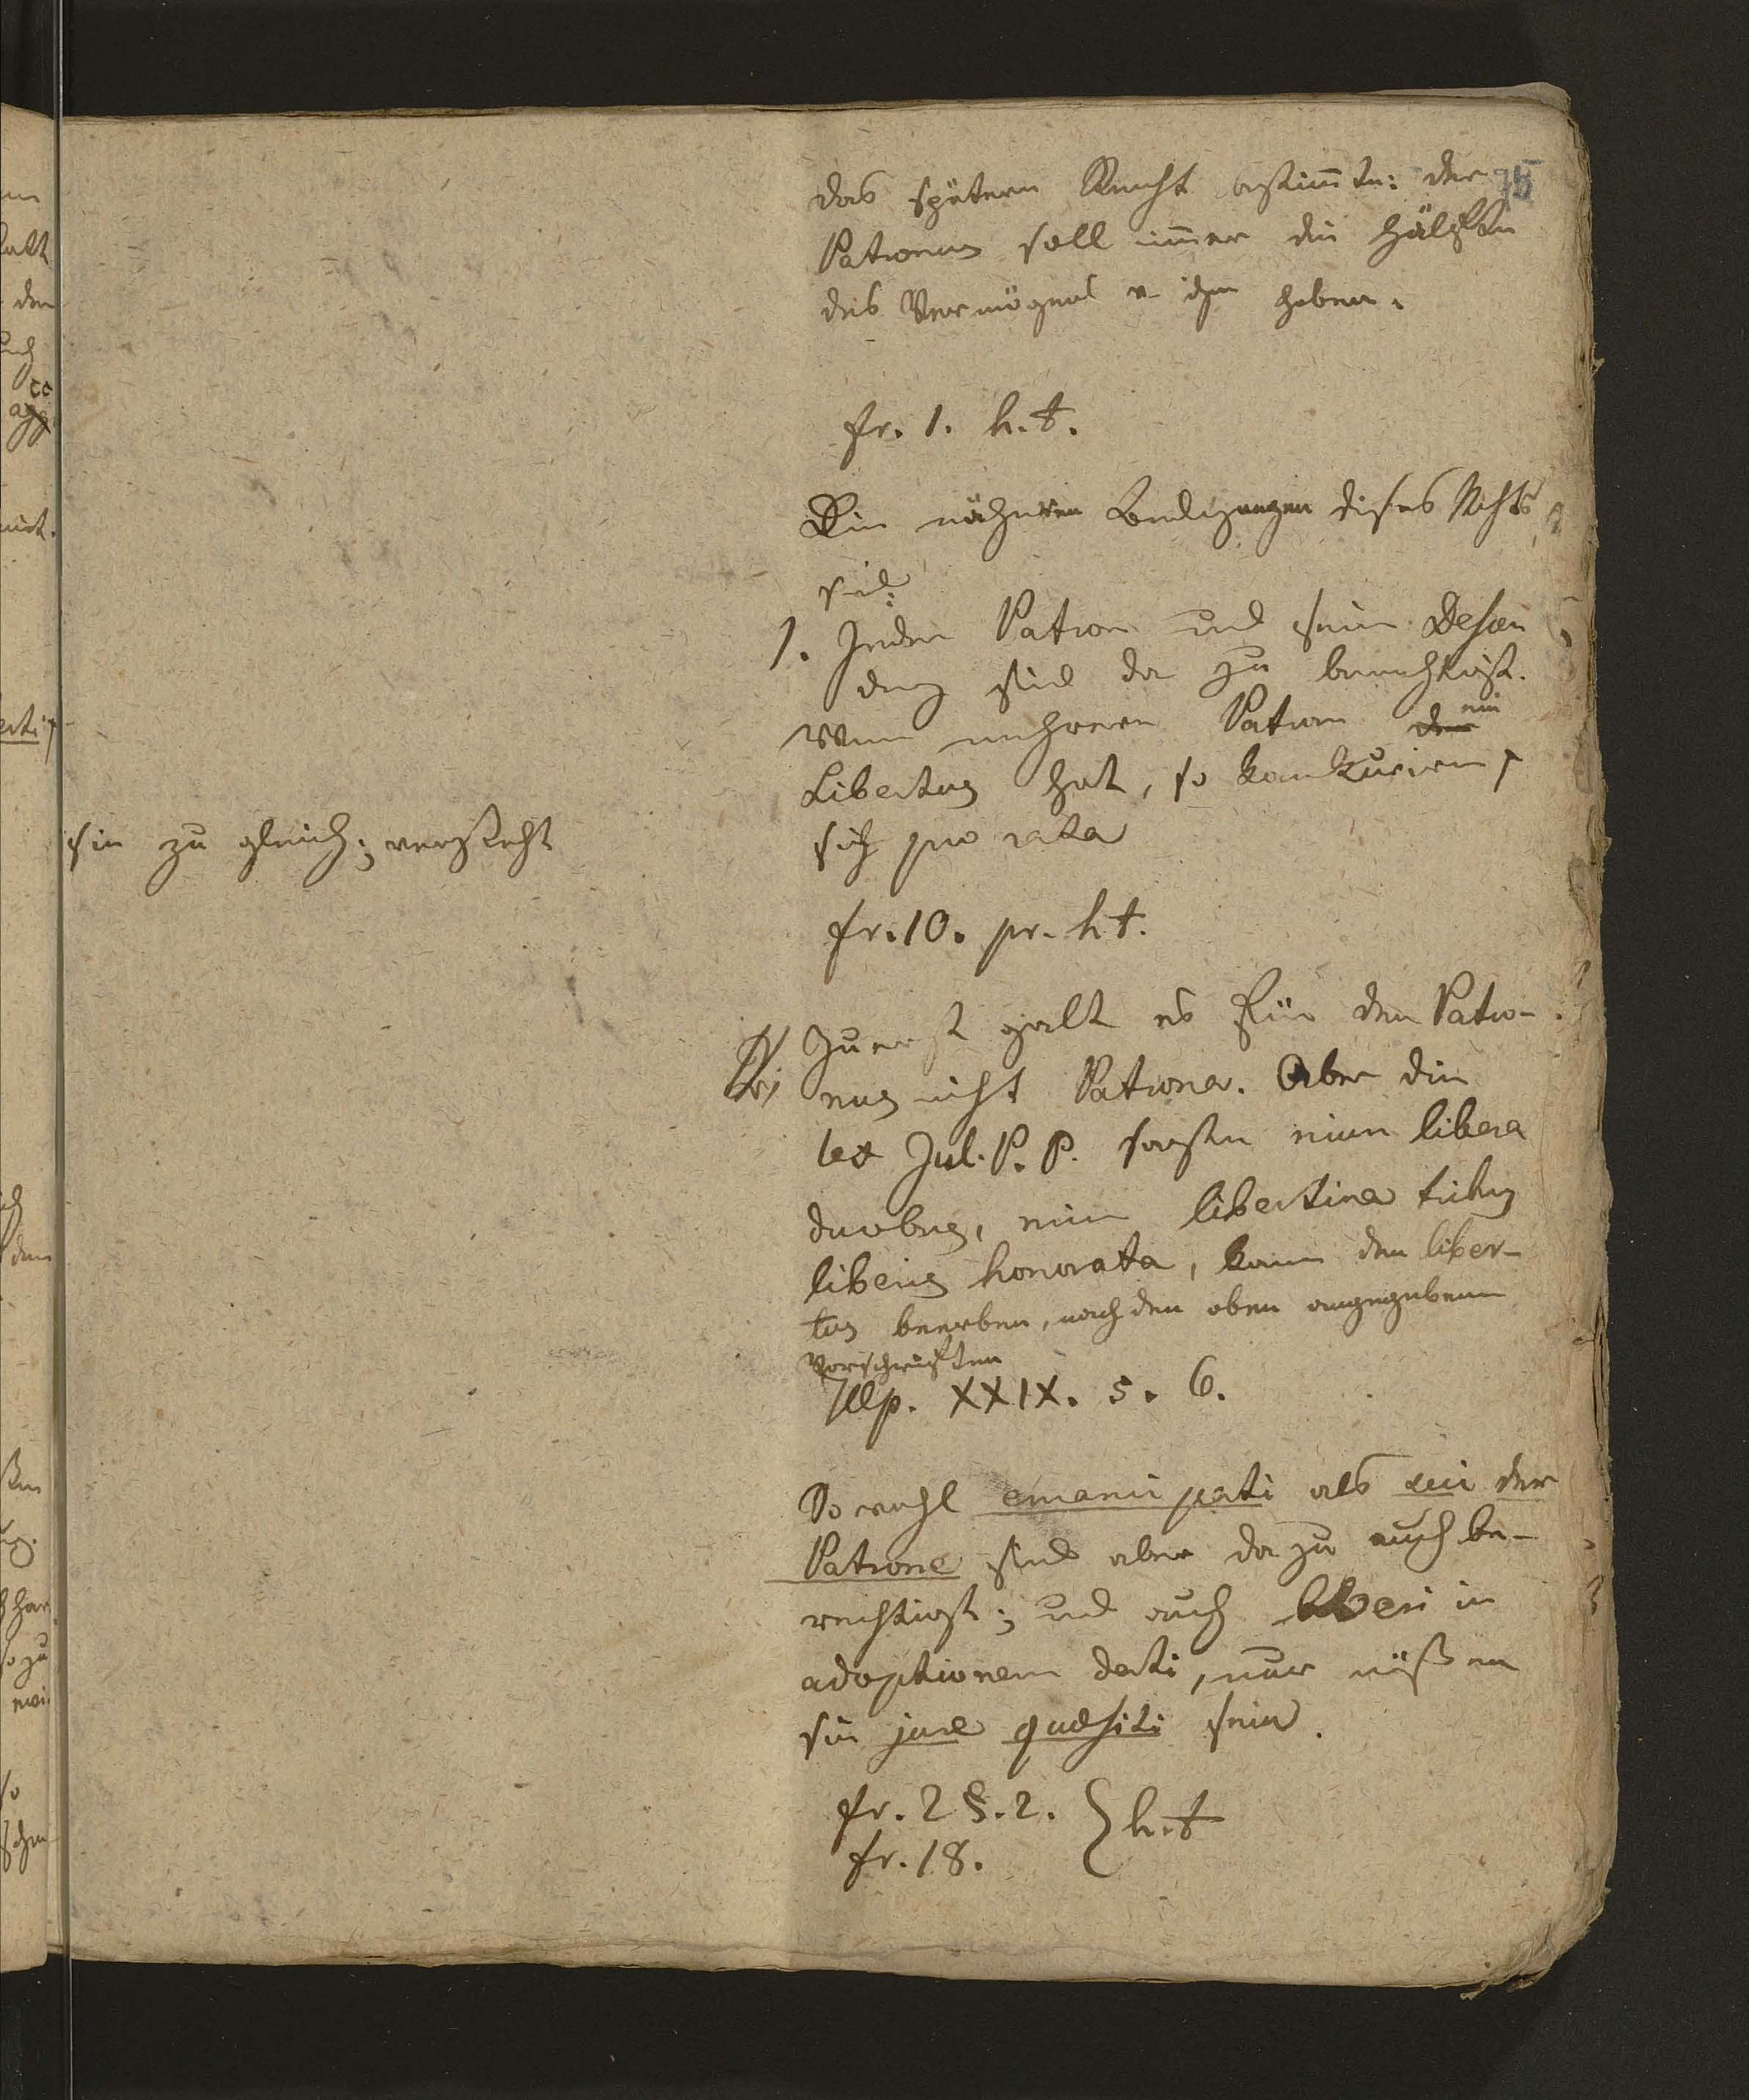 75
das spätere Recht bestim̅te: der
Patronus soll im̅er die Hälfte
des Vermögens v. ihm haben.
fr. 1. h. t.
Die nähern Bedigungen dises Rechts
sind:
1. Jeder Patron und seine Descen
denz sind da zu berechtigt.
Wenn mehrere Patron der ein
Libertus hat, so konkuriren
sie zu gleich; versteht
sich pro rata
fr. 10. pr. h t.
Zuerst galt es für den Patro-
nus nicht Patrona. Aber die
lex Jul. P. P. sagte eine libera
duobus, eine libertina tribus
liberis honorata, kann den liber-
tus beerben, nach den oben angegebenen
Vorschriften
Ulp. XXIX. 5. 6.
So wohl emancipati als sui der
Patrone sind aber da zu auch be-
rechtigt; und auch liberi in
adoptionem dati, nur müssen
sie jure quaesiti sein.
fr. 2 §. 2. } h. t
fr. 18.